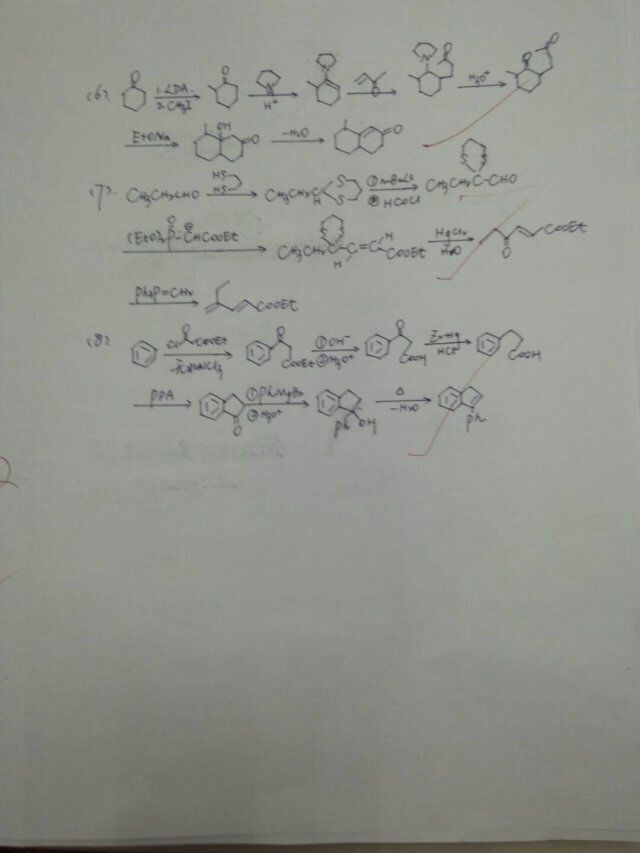 (6). O 1. LDA. 2. CH₃I O N H⁺ N O N O H₃O⁺ O O
EtONa OH O -H₂O O
(7). CH₃CH₂CHO HS HS CH₃CH₂C H S S ① n-BuLi ② HCOCl CH₃CH₂C-CHO S S
(EtO)₂P-CHCOOEt O ⊖ CH₃CH₂C-C=C H H COOEt HgCl₂ H₂O O COOEt
Ph₃P=CH₂ COOEt
(8). Cl O COOEt AlCl₃ O COOEt ① OH⁻ ② H₃O⁺ O COOH Zn-Hg HCl COOH
PPA O ① PhMgBr ② H₃O⁺ Ph OH △ -H₂O Ph